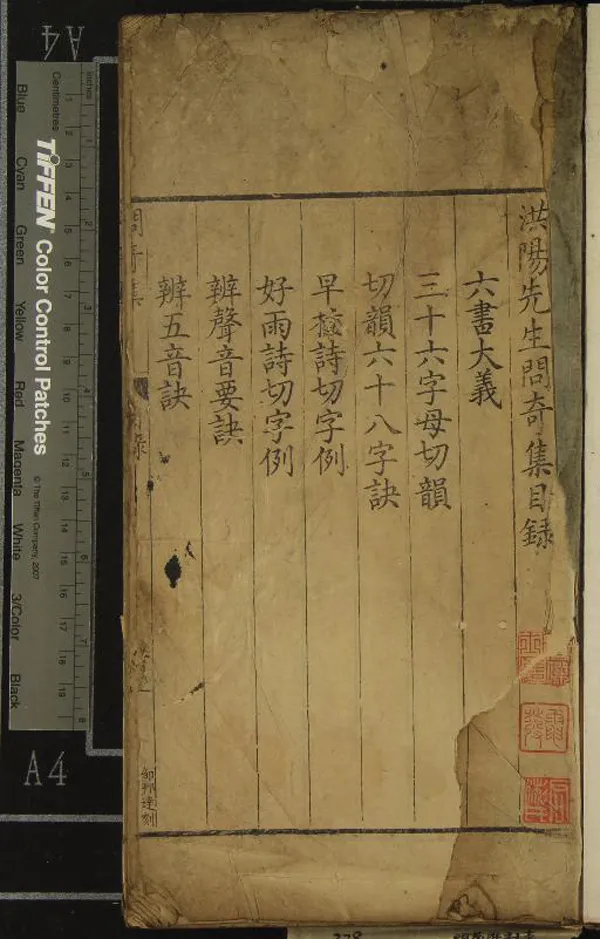 洪陽先生問奇集目錄
六書大義
三十六字母切韻
切韻六十八字訣
早梅詩切字例
好雨詩切字例
辨聲音要訣
辨五音訣
問奇集
目錄
鄒邦達刻
A4
Inches
Centimetres
TIFFEN Color Control Patches
© The Tiffen Company, 2007
Blue
Cyan
Green
Yellow
Red
Magenta
White
3/Color
Black
A4